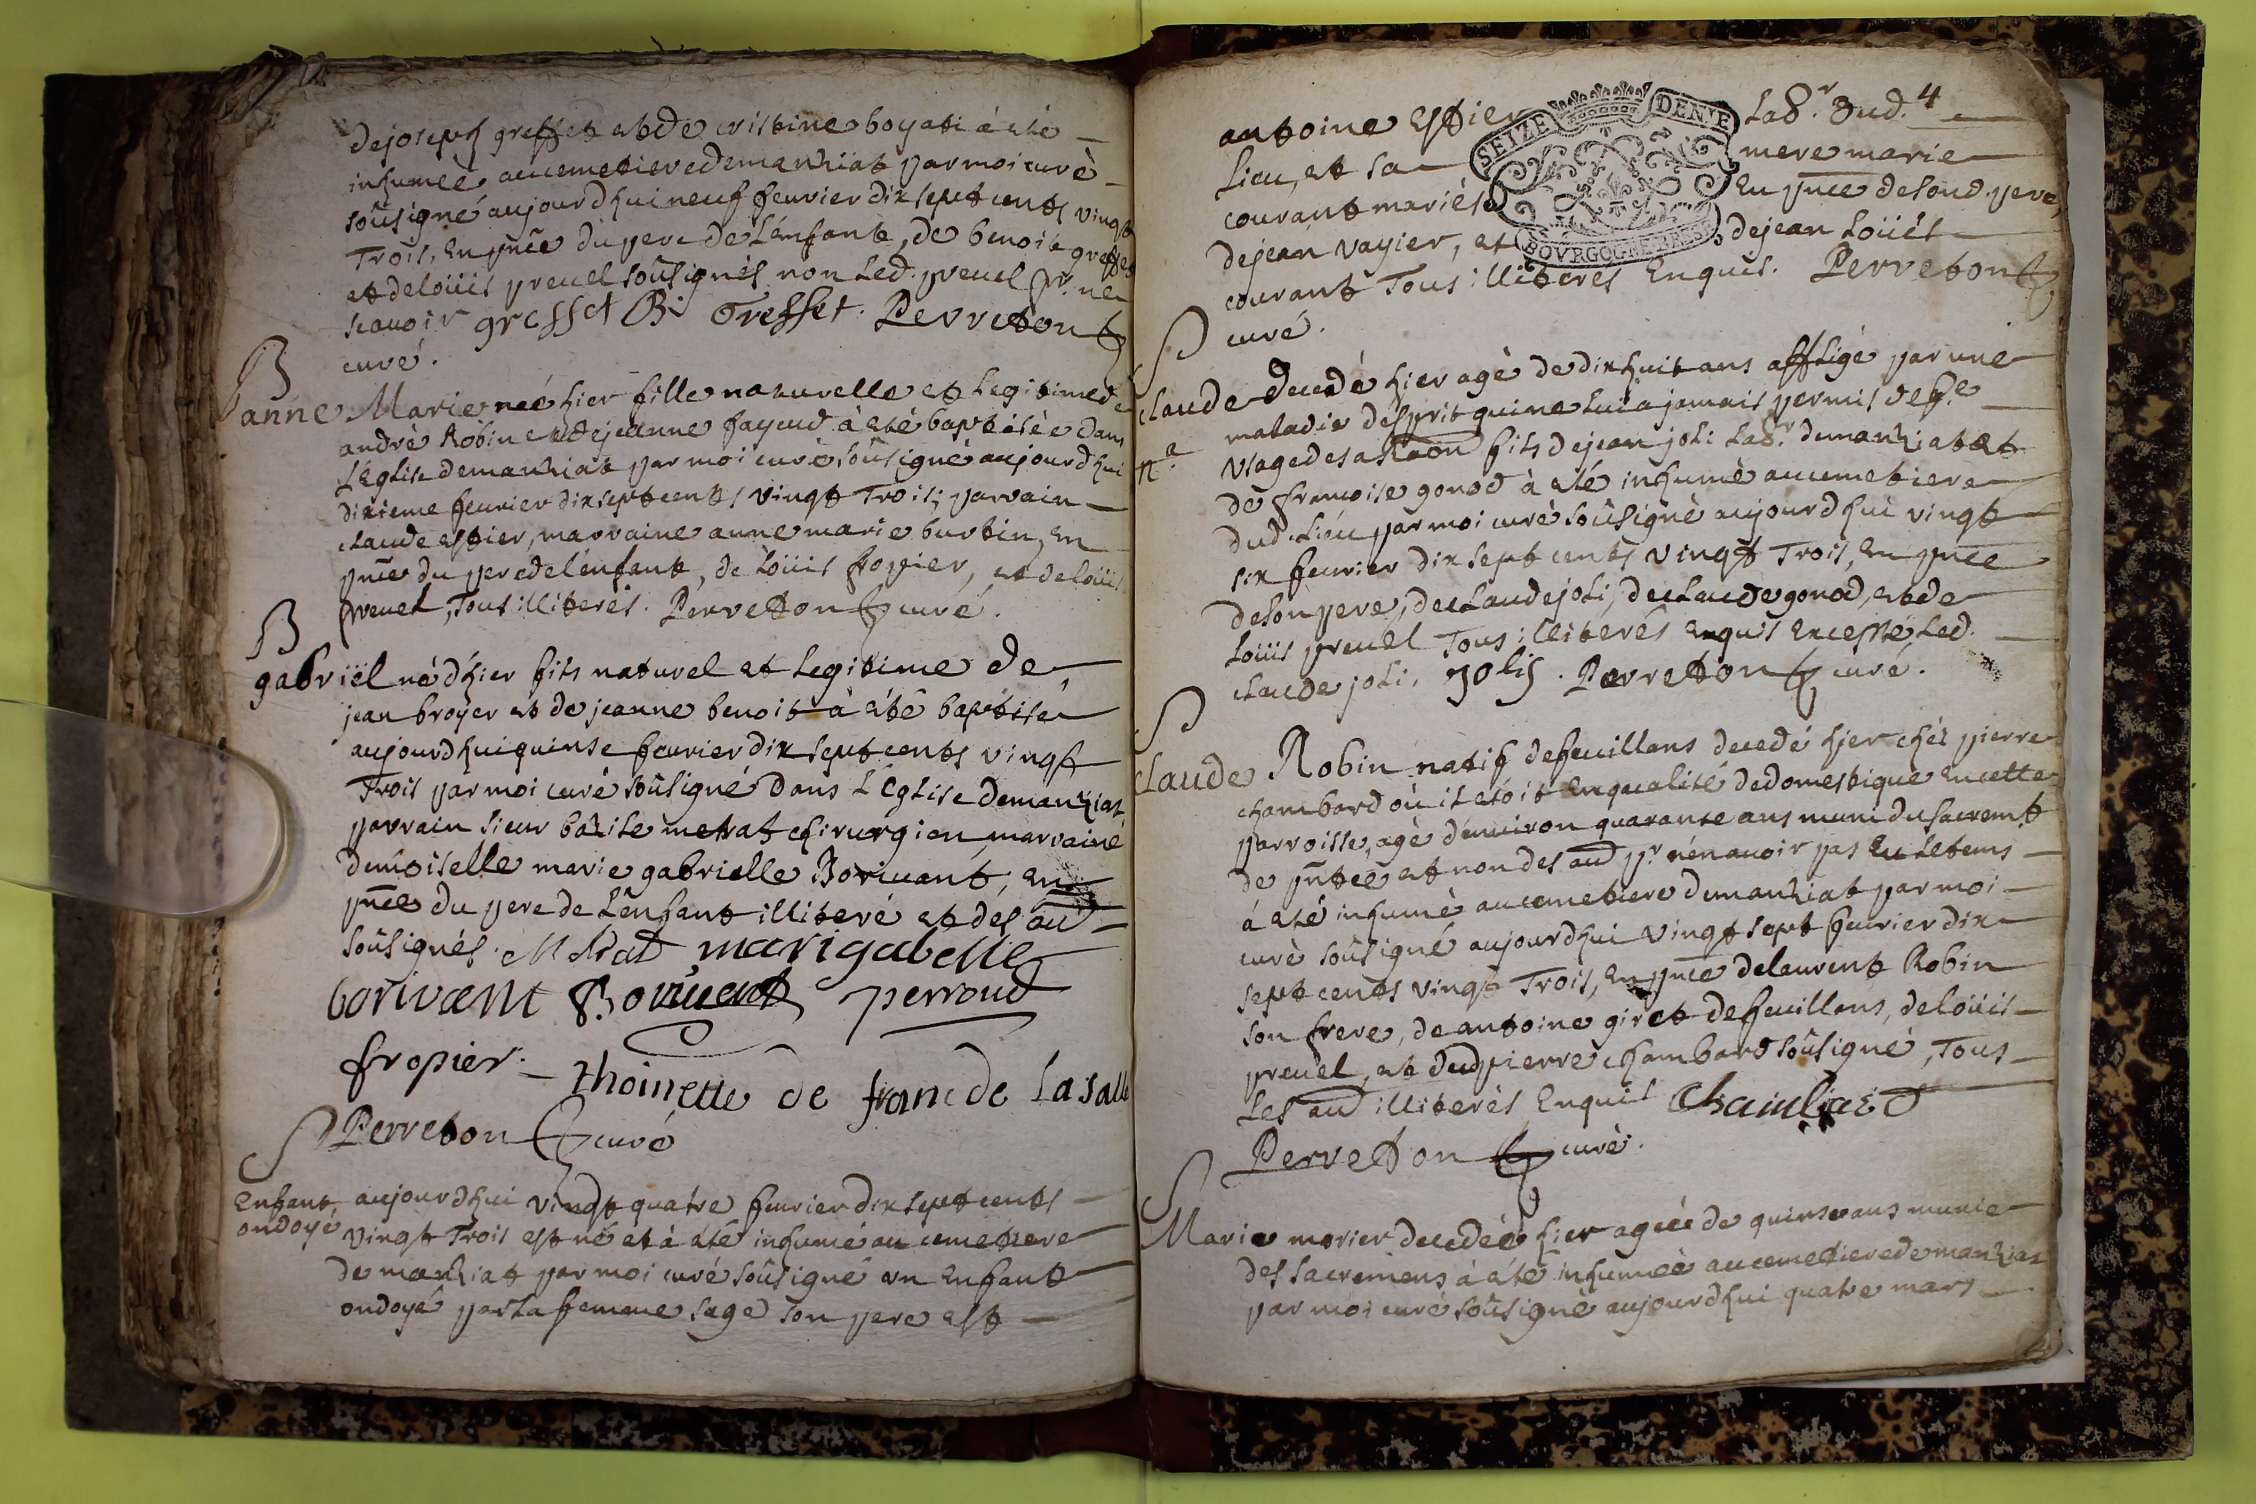 de joseph greffet et de cristine boyati à eté
inhumeé au cemetiere de manziat par moi curé
soûsigné aujourdhui neuf feurier dix sept cents vingt
Trois, En pnce du pere de L'enfante, de benoit greffet
et de loüis preuel soûsignés non Led. preuel pr. ne
scauoir greffet B. Greffet. Perreton
curé.
B
anne Marie neé hier fille naturelle et Legitime de
andré Robin et de jeanne fayeud à eté baptiseè dans
L'Eglise de manziat par moi curé soûsigné aujourdhui
dixieme feurier dix sept cents vingt Trois, parrain
claude estier, marraine anne marie burtin, En
pnce du pere de lénfante, de Loüis fropier, et de loüis
preuel, Tous illiterés. Perreton curé.
B
gabriël né d'hier fils naturel et Legitime de
jean broyer et de jeanne benoit à eté baptisé
aujourdhui quinse feurier dix sept cents vingt
Trois par moi curé soûsigné dans L'Eglise de manziat,
parrain sieur bazile metrat chirurgien, marraine
demoiselle marie gabrielle Boriuant, en
pnce du pere de L'enfant illiteré et des au
soûsignés. Metrat marigabelle
borivant Boriuent perroud
fropier. thoinette de franc de La salle
Perreton curé
S
Enfant aujourdhui vingt quatre feurier dix sept cents
ondoyé vingt Trois est né et à eté inhumé au cemetiere
de manziat par moi curé soûsigné un Enfant
ondoyé par la femme sage son pere est
antoine Estier Lab.r dud. 4
Lieu, et sa mere marie
courant mariés En pnce de sond. pere,
de jean vayier, et de jean Loüis
courant Tous illiterés Enquis. Perreton
curé.
SEIZE DEN.E
BOVRGOGNE BRESSE
S
claude decedé hier agé de dix huit ans affligé par une
maladie d'esprit qui ne lui a jamais permis de fe
n.a usage de sa raison fils de jean joli Lab.r de manziat et
de francoise gonod à eté inhumé au cemetiere
dud. Lieu par moi curé soûsigné aujourdhui vingt
six feurier dix sept cents vingt Trois, En pnce
de son pere, de claude joli, de claude gonod, et de
Loüis preuel Tous illiterés Enquis Excepté Led.
claude joli. joliy. Perreton curé.
S
claude Robin natif de feuillans decedé hier chés pierre
chambard où il etoit En qualité de domestique En cette
parroisse, agé d'enuiron quarante ans muni du sacremt
de pntce et non des au pr nén auoir pas Eu Le tems
à eté inhumé au cemetiere de manziat par moi
curé soûsigné aujourdhui vingt sept feurier dix
sept cents vingt Trois, En pnce de laurent Robin
son frere, de antoine giret de feuillans, de loüis
preuel, et dud pierre chambard soûsigné, Tous
Les au illiterés Enquis Chambard
Perreton curé.
S
Marie morier decedeé hier ageé de quinse ans munie
des sacremens à eté inhumeé au cemetiere de manziat
par moi curé soûsigné aujourdhui quatre mars